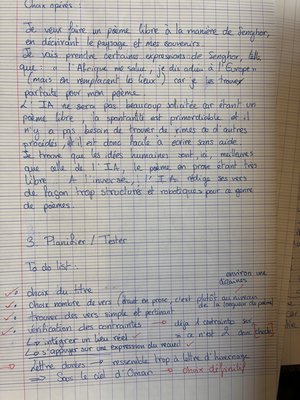 Choix opérés :
Je veux faire un poème libre à la manière de Senghor,
en décrivant le paysage et mes souvenirs.
Je vais prendre certaines expressions de Senghor, telle
que : " l'Afrique me salue, je dis adieu à l'Europe"
(mais en remplaçant les lieux) car je les trouver
parfaite pour mon poème.
L'IA ne sera pas beaucoup sollicitée car étant un
poème libre, la spontanéité est primordiale et il
n'y a pas besoin de trouver de rimes ou d'autres
procédés, et il est donc facile à écrire sans aide.
Je trouve que les idées humaines sont, ici, meilleures
que celle de l'IA, le poème en prose étant très
libre. A l'inverse, l'IA rédige ses vers
de façon trop structuré et robotiques pour ce genre
de poèmes.
3. Planifier / Tester
To do list :
choix du titre
environ une
dizaines
choix nombre de vers (étant en prose, c'est plutôt au niveau
de la longueur du poème)
trouver des vers simple et pertinant
vérification des contraintes → déjà 2 contraintes sur
↳ intégrer un lieu réel
↳ s'appuyer sur une expression du recueil
Lettre d'Oman → ressemble trop à lettre d'hivernage
⇒ Sous le ciel d'Oman → choix définitif